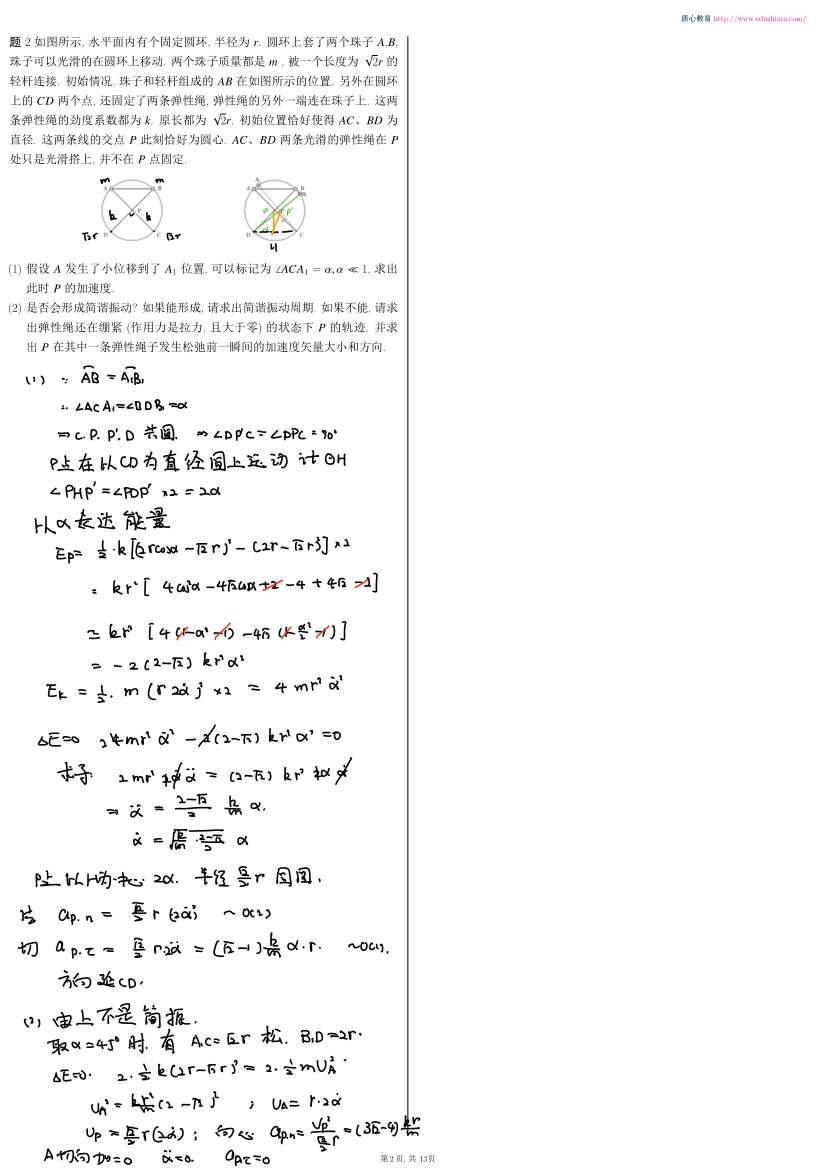 质心教育 http://www.eduzhixin.com/
题 2 如图所示, 水平面内有个固定圆环, 半径为 r. 圆环上套了两个珠子 A,B,
珠子可以光滑的在圆环上移动. 两个珠子质量都是 m , 被一个长度为 √2r 的
轻杆连接. 初始情况, 珠子和轻杆组成的 AB 在如图所示的位置. 另外在圆环
上的 CD 两个点, 还固定了两条弹性绳, 弹性绳的另外一端连在珠子上. 这两
条弹性绳的劲度系数都为 k. 原长都为 √2r. 初始位置恰好使得 AC、BD 为
直径. 这两条线的交点 P 此刻恰好为圆心. AC、BD 两条光滑的弹性绳在 P
处只是光滑搭上, 并不在 P 点固定.
m m
A B P D C
k k
√2r √2r
A₁ A B B₁ P P' D C
H
(1) 假设 A 发生了小位移到了 A₁ 位置, 可以标记为 ∠ACA₁ = α, α ≪ 1, 求出
此时 P 的加速度.
(2) 是否会形成简谐振动? 如果能形成, 请求出简谐振动周期. 如果不能, 请求
出弹性绳还在绷紧 (作用力是拉力, 且大于零) 的状态下 P 的轨迹. 并求
出 P 在其中一条弹性绳子发生松弛前一瞬间的加速度矢量大小和方向.
(1) ∵ AB = A₁B₁
∴ ∠ACA₁=∠BDB₁=α
⇒ C. P. P'. D 共圆. ⇒ ∠DP'C=∠DPC=90°
P点在以CD为直径圆上运动 计⊙H
∠PHP'=∠PDP' ×2 = 2α
以α表达能量
Ep= ½·k[(2rcosα-√2r)²-(2r-√2r)²]×2
= kr²[4cos²α-4√2cosα+2-4+4√2-2]
≃ kr² [4(1-α²-1)-4√2(1-α²/2-1)]
= -2(2-√2)kr²α²
Ek = ½·m(r2α̇)²×2 = 4mr²α̇²
ΔE=0 24mr²α̇²-2(2-√2)kr²α²=0
求导: 2mr²2α̇α̈ = (2-√2)kr²2αα̇
⇒ α̈ = (2-√2)/2 k/m α.
α̇ = √(k/m·(2-√2)/2) α
P点以H为中心 2α. 半径 √2/2 r 圆周.
aP.n = √2/2 r(2α̇)² ~O(2)
切 aP.τ = √2/2 r·2α̈ = (√2-1)k/m α·r. ~O(1).
方向沿CD.
(2) 由上不是简振.
取α=45°时. 有 A₁C=√2r 松. B₁D=2r.
ΔE=0. 2·½k(2r-√2r)²=2·½mUA².
UA²=kr²/m(2-√2)² ; UA=r·2α̇
UP=√2/2r(2α̇); 向心 aP.n=UP²/(√2/2r)=(3√2-4)kr/m
A切向力=0 α̈=0. aP.τ=0
第 2 页, 共 13页